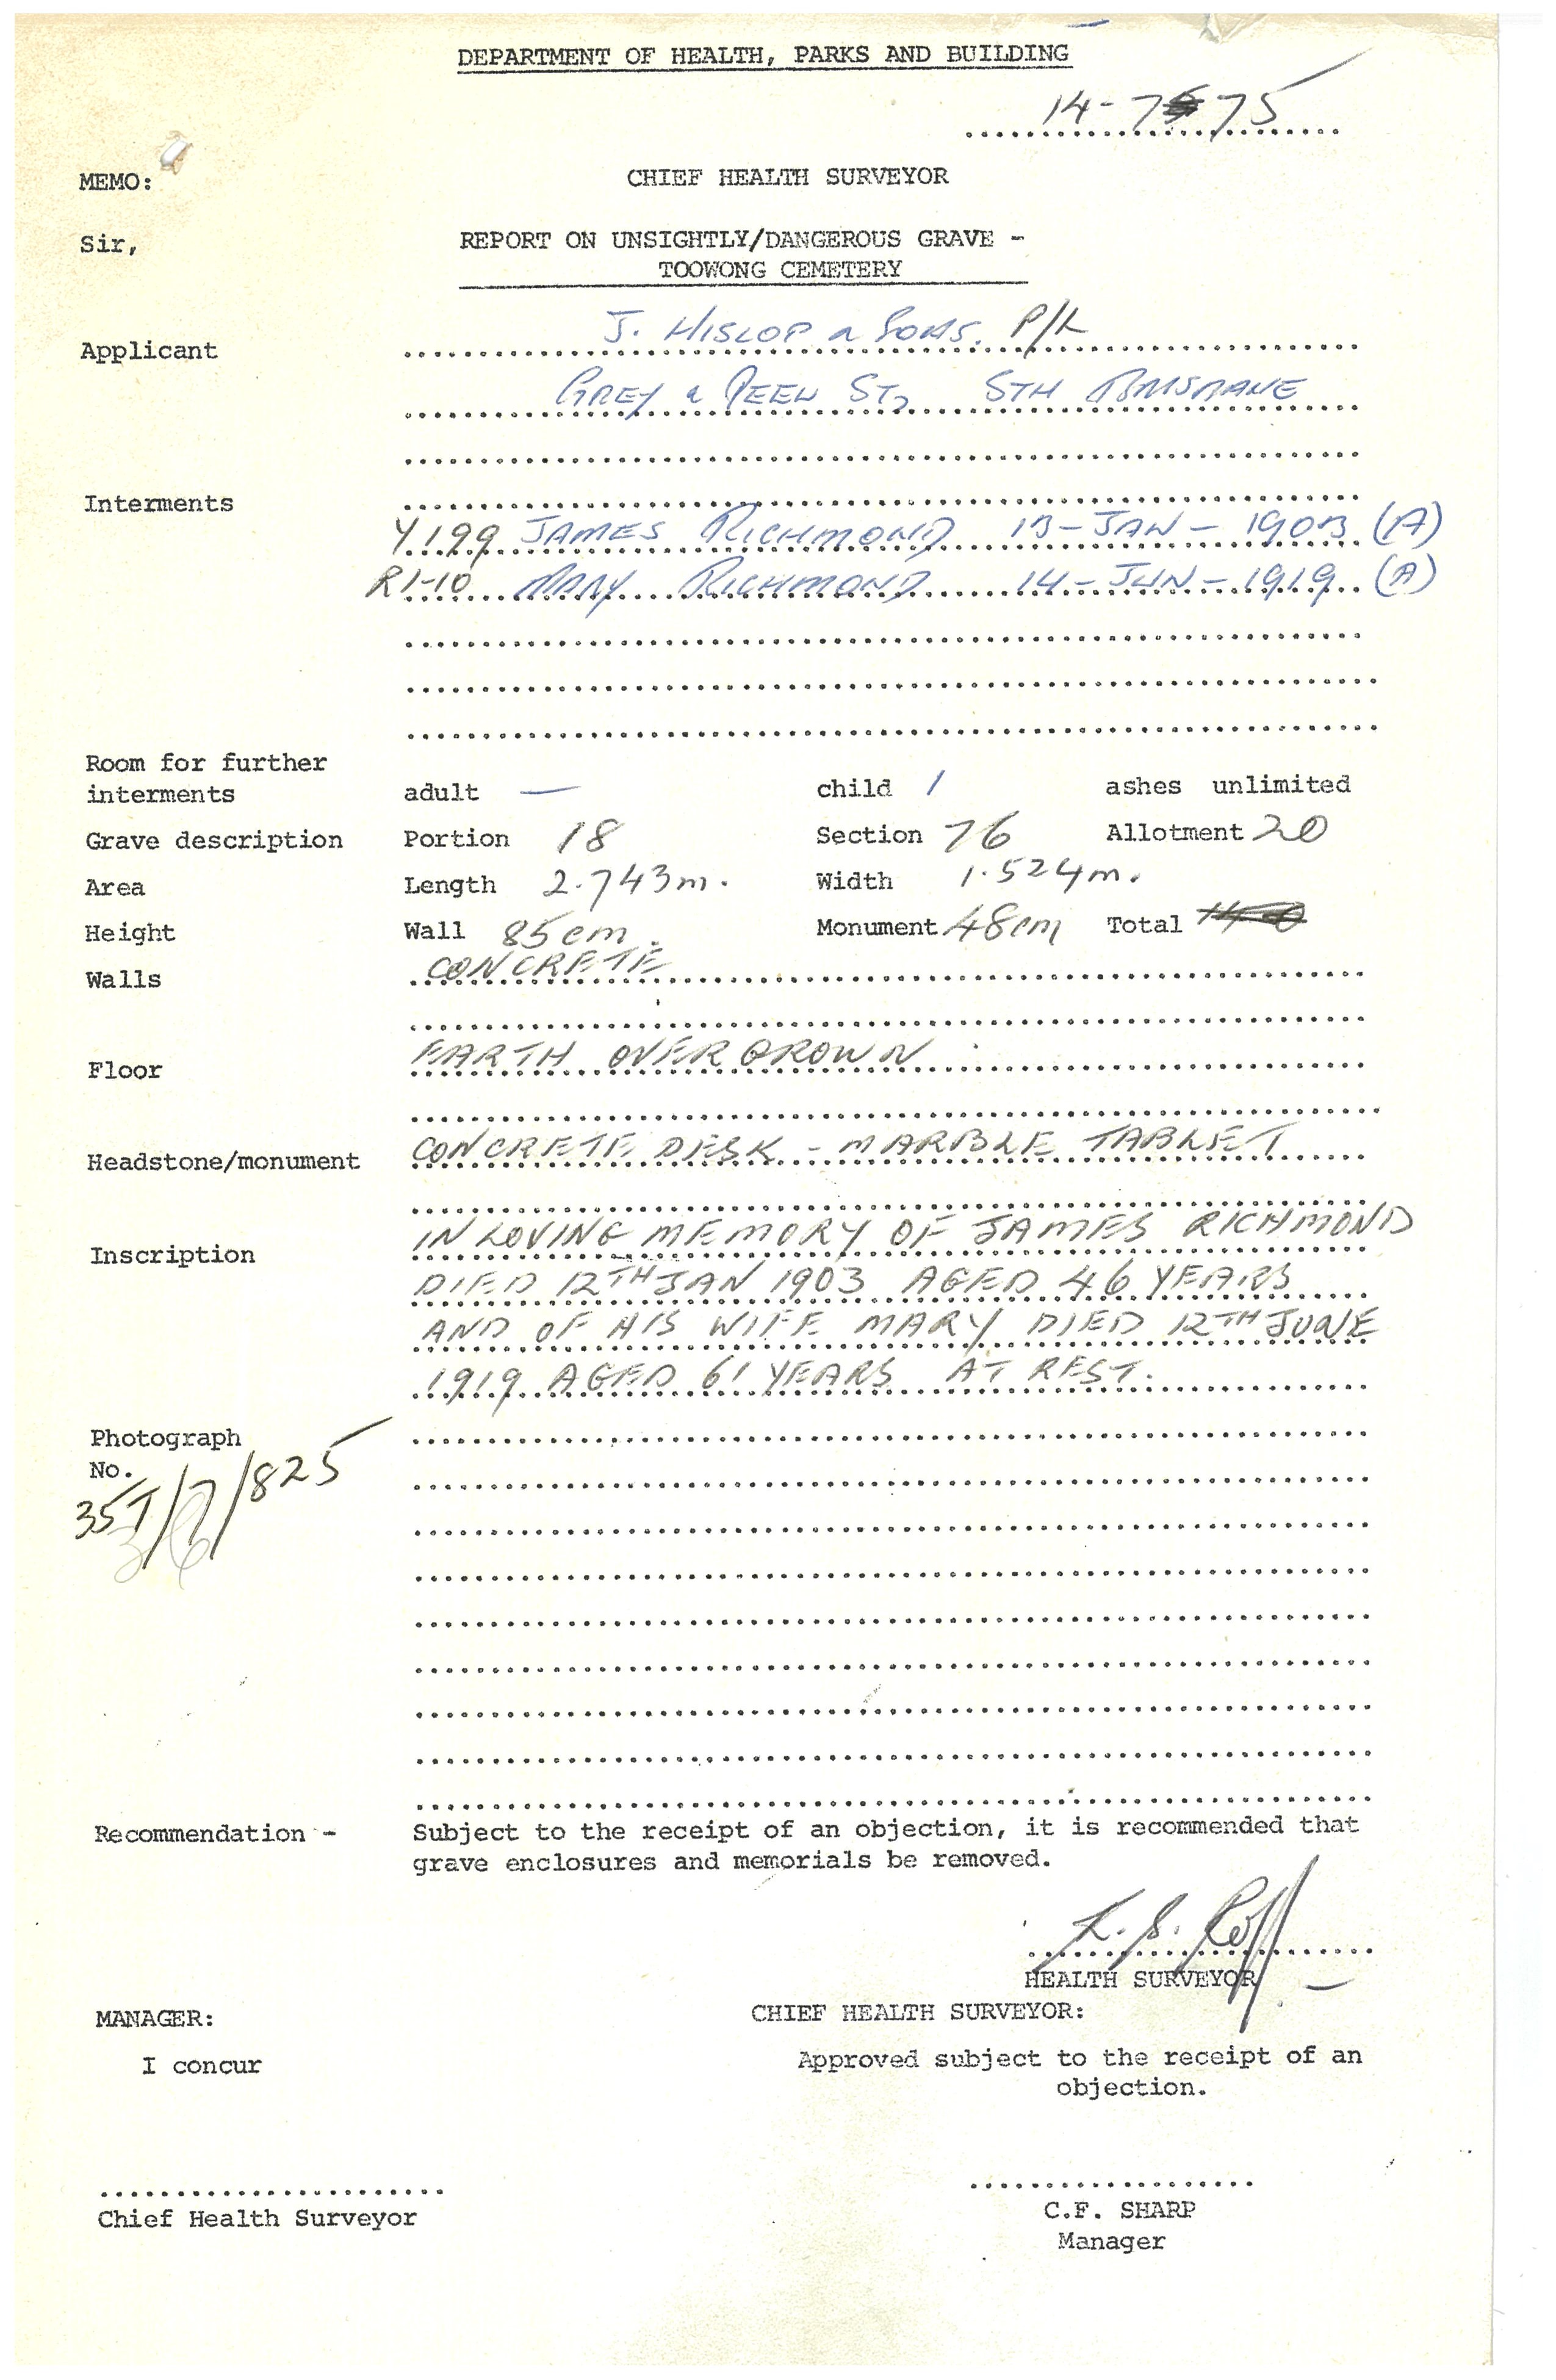 DEPARTMENT OF HEALTH, PARKS AND BUILDING
14-7-75
MEMO: CHIEF HEALTH SURVEYOR
Sir, REPORT ON UNSIGHTLY/DANGEROUS GRAVE -
TOOWONG CEMETERY
Applicant J. HISLOP & SONS. P/L
GREY & PEEL ST, STH BRISBANE
Interments
Y199 JAMES RICHMOND 13-JAN-1903 (A)
R1-10 MARY RICHMOND 14-JUN-1919 (A)
Room for further
interments adult — child 1 ashes unlimited
Grave description Portion 18 Section 76 Allotment 20
Area Length 2.743m. Width 1.524m.
Height Wall 85cm. Monument 48cm Total
Walls CONCRETE
Floor EARTH OVERGROWN
Headstone/monument CONCRETE DESK - MARBLE TABLET
Inscription IN LOVING MEMORY OF JAMES RICHMOND
DIED 12TH JAN 1903 AGED 46 YEARS
AND OF HIS WIFE MARY DIED 12TH JUNE
1919 AGED 61 YEARS AT REST.
Photograph
No.
35T/7/825
Recommendation - Subject to the receipt of an objection, it is recommended that
grave enclosures and memorials be removed.
HEALTH SURVEYOR
MANAGER: CHIEF HEALTH SURVEYOR:
I concur Approved subject to the receipt of an
objection.
Chief Health Surveyor C.F. SHARP
Manager